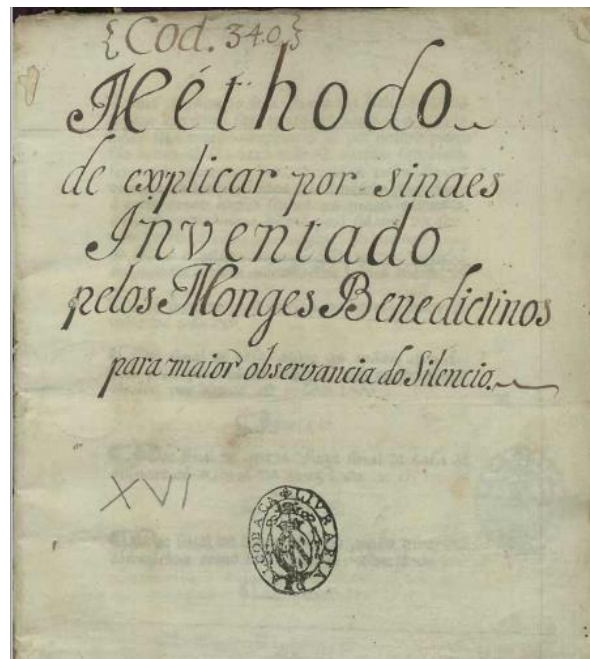 {Cod. 340}
Méthodo
de explicar por sinaes
Inventado
pelos Monges Benedictinos
para maior observancia do Silencio.
XVI
LIVRARIA
DE ALCOBACA